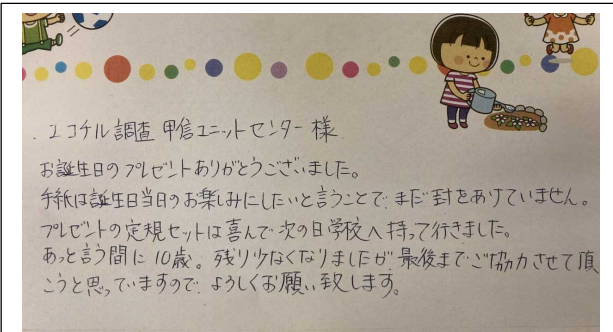 エコチル調査 甲信ユニットセンター 様
お誕生日のプレゼントありがとうございました。
手紙は誕生日当日のお楽しみにしたいと言うことで、まだ封をあけていません。
プレゼントの定規セットは喜んで次の日学校へ持って行きました。
あっと言う間に10歳。残り少なくなりましたが最後までご協力させて頂
こうと思っていますので、よろしくお願い致します。